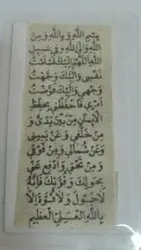 بِسْمِ اللَّهِ وَبِاللَّهِ وَمِنَ
اللَّهِ وَإِلَى اللَّهِ وَفِي سَبِيلِ
اللَّهِ اللَّهُمَّ إِلَيْكَ أَسْلَمْتُ
نَفْسِي وَإِلَيْكَ وَجَّهْتُ
وَجْهِي وَإِلَيْكَ فَوَّضْتُ
أَمْرِي فَاحْفَظْنِي بِحِفْظِ
الْإِيمَانِ مِنْ بَيْنِ يَدَيَّ وَ
مِنْ خَلْفِي وَعَنْ يَمِينِي
وَعَنْ شِمَالِي وَمِنْ فَوْقِي
وَمِنْ تَحْتِي وَادْفَعْ عَنِّي
بِحَوْلِكَ وَقُوَّتِكَ فَإِنَّهُ
لَا حَوْلَ وَلَا قُوَّةَ إِلَّا
بِاللَّهِ الْعَلِيِّ الْعَظِيمِ